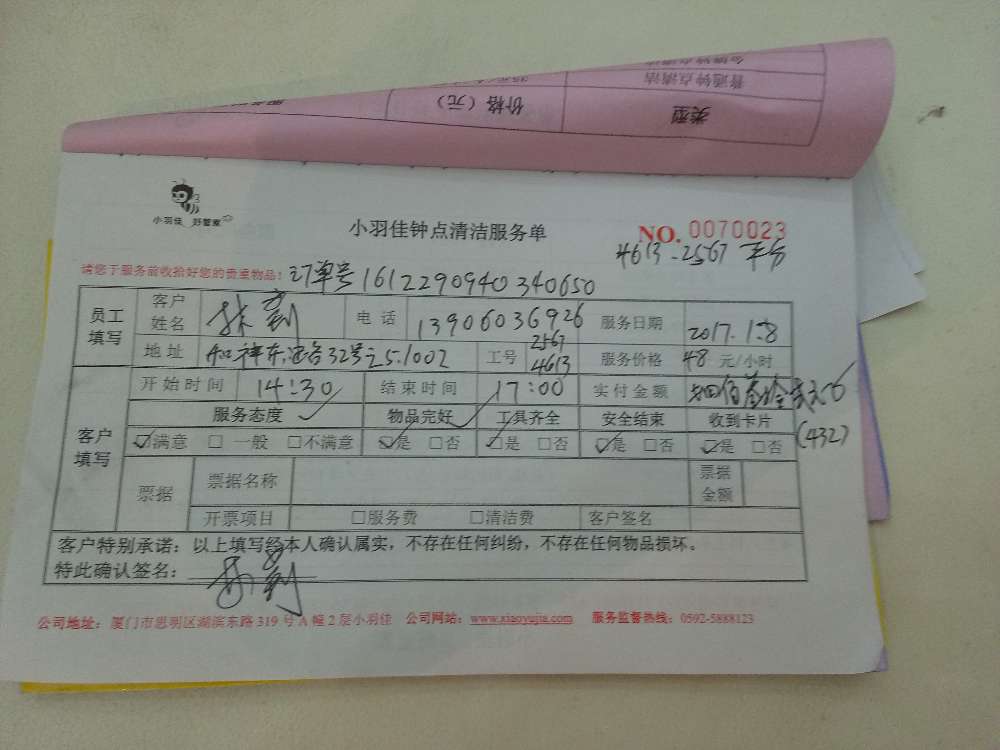 普通钟点清洁
类型
价格（元）
小羽佳 好管家
小羽佳钟点清洁服务单
NO. 0070023
4613-2567 平分
请您于服务前收拾好您的贵重物品！订单号161229094034 0650
员工填写
客户姓名
电话 13906036926
服务日期 2017.1.8
地址
32号之5.1002
工号 2567 4613
服务价格 48 元/小时
客户填写
开始时间 14:30
结束时间 17:00
实付金额
(432)
服务态度 物品完好 工具齐全 安全结束 收到卡片
☑满意 □一般 □不满意 ☑是 □否 ☑是 □否 ☑是 □否 ☑是 □否
票据
票据名称
票据金额
开票项目 □服务费 □清洁费 客户签名
客户特别承诺：以上填写经本人确认属实，不存在任何纠纷，不存在任何物品损坏。
特此确认签名：
公司地址：厦门市思明区湖滨东路 319 号 A 幢 2 层小羽佳 公司网站：www.xiaoyujia.com 服务监督热线：0592-5888123